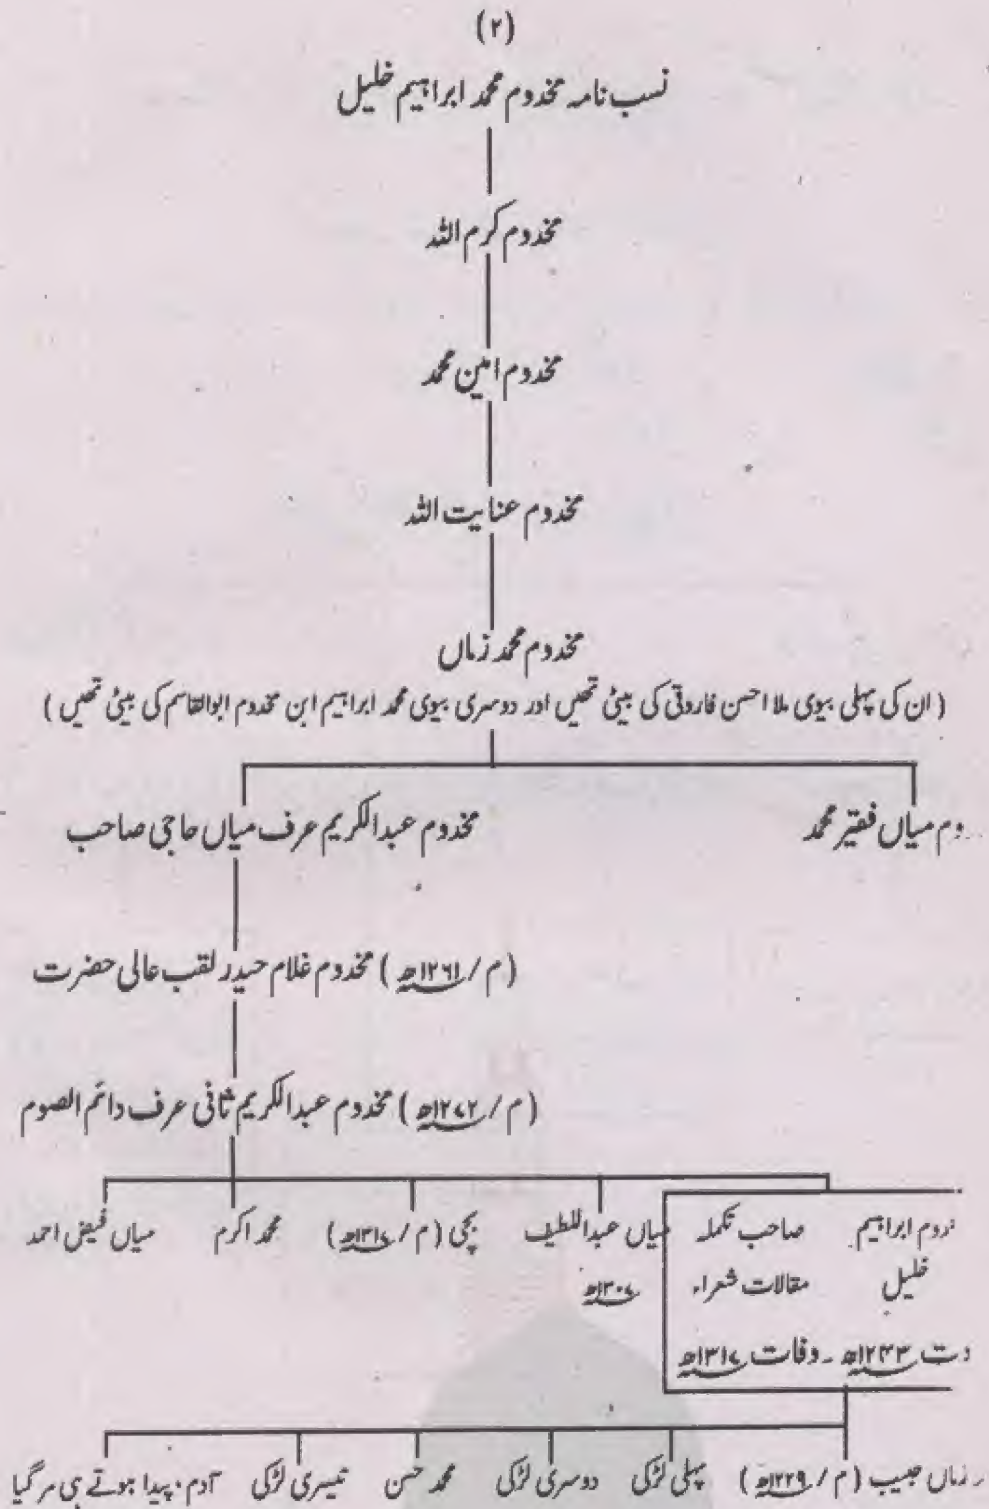 (۲)
نسب نامہ مخدوم محمد ابراہیم خلیل
مخدوم کرم اللہ
مخدوم امین محمد
مخدوم عنایت اللہ
مخدوم محمد زماں
( ان کی پہلی بیوی ملا احسن فاروقی کی بیٹی تھیں اور دوسری بیوی محمد ابراہیم ابن مخدوم ابوالقاسم کی بیٹی تھیں )
دوم میاں فقیر محمد مخدوم عبدالکریم عرف میاں حاجی صاحب
(م/۱۲۶۱ھ) مخدوم غلام حیدر لقب عالی حضرت
(م/۱۲۷۲ھ) مخدوم عبدالکریم ثانی عرف دائم الصوم
دوم ابراہیم صاحب تکملہ میاں عبداللطیف بچی (م/۱۳۱۷ھ) محمد اکرم میاں فیض احمد
خلیل مقالات شعراء ۱۳۰۷ھ
دت ۱۲۴۳ھ ۔ وفات ۱۳۱۷ھ
زماں حبیب (م/۱۲۲۹ھ) پہلی لڑکی دوسری لڑکی محمد حسن تیسری لڑکی آدم، پیدا ہوتے ہی مر گیا